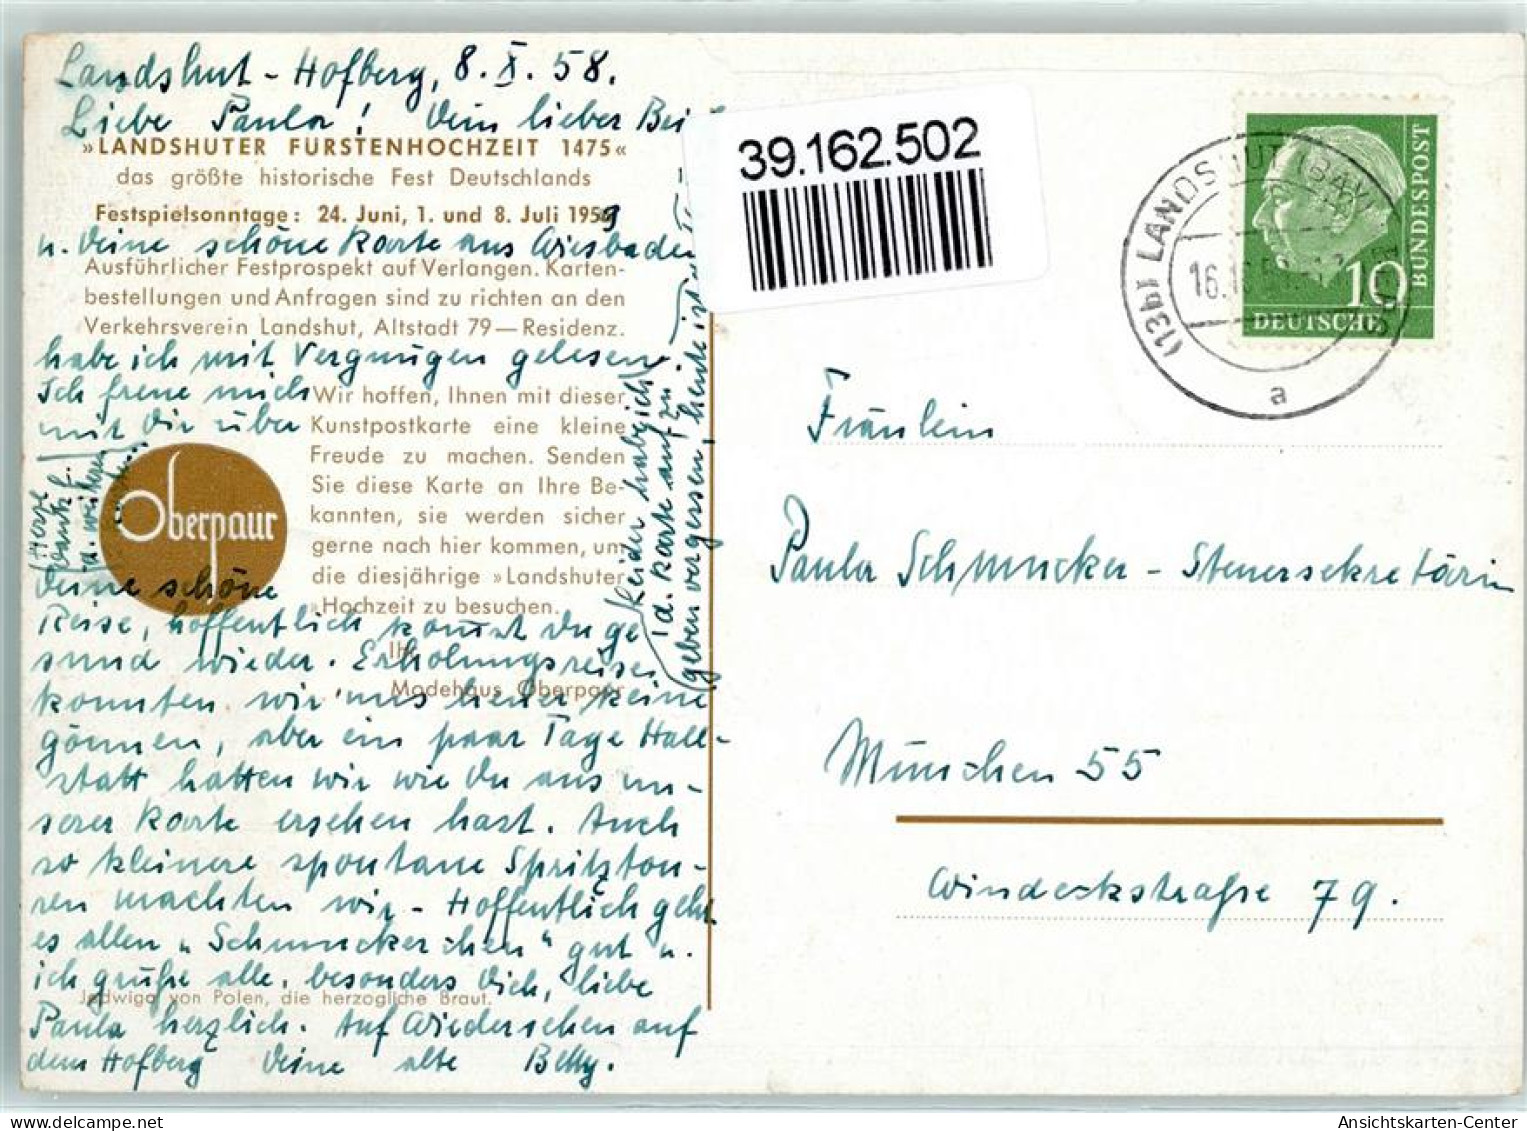 Landshut - Hofberg, 8. X. 58.
Liebe Paula! Dein lieber
»LANDSHUTER FÜRSTENHOCHZEIT 1475«
das größte historische Fest Deutschlands
Festspielsonntage: 24. Juni, 1. und 8. Juli 1959
u. Deine schöne Karte aus Wiesbaden
Ausführlicher Festprospekt auf Verlangen. Karten-
bestellungen und Anfragen sind zu richten an den
Verkehrsverein Landshut, Altstadt 79 — Residenz.
habe ich mit Vergnügen gelesen
Ich freue mich
mit Dir über
Wir hoffen, Ihnen mit dieser
Kunstpostkarte eine kleine
Freude zu machen. Senden
Sie diese Karte an Ihre Be-
kannten, sie werden sicher
gerne nach hier kommen, um
die diesjährige »Landshuter
Hochzeit zu besuchen.
Ihr
Modehaus Oberpaur
Oberpaur
Deine schöne
Reise, hoffentlich kommst Du ge
sund wieder. Erholungsreisen
konnten wir uns heuer keine
gönnen, aber ein paar Tage Hall-
statt hatten wir wie Du aus un-
serer Karte ersehen hast. Auch
so kleinere spontane Spritztou-
ren machten wir - Hoffentlich geht
es allen „Schmuckerchen" gut u.
ich grüße alle, besonders Dich, liebe
Jadwiga von Polen, die herzogliche Braut.
Paula herzlich. Auf Wiedersehen auf
dem Hofberg Deine alte Betty.
Leider habe ich
d. Karte auf zu
geben vergessen, heute ist
39.162.502
(13b) LANDSHUT (BAY)
16.
a
BUNDESPOST
10
DEUTSCHE
Fräulein
Paula Schmucker - Steuersekretärin
München 55
Windeckstraße 79.
Ansichtskarten-Center